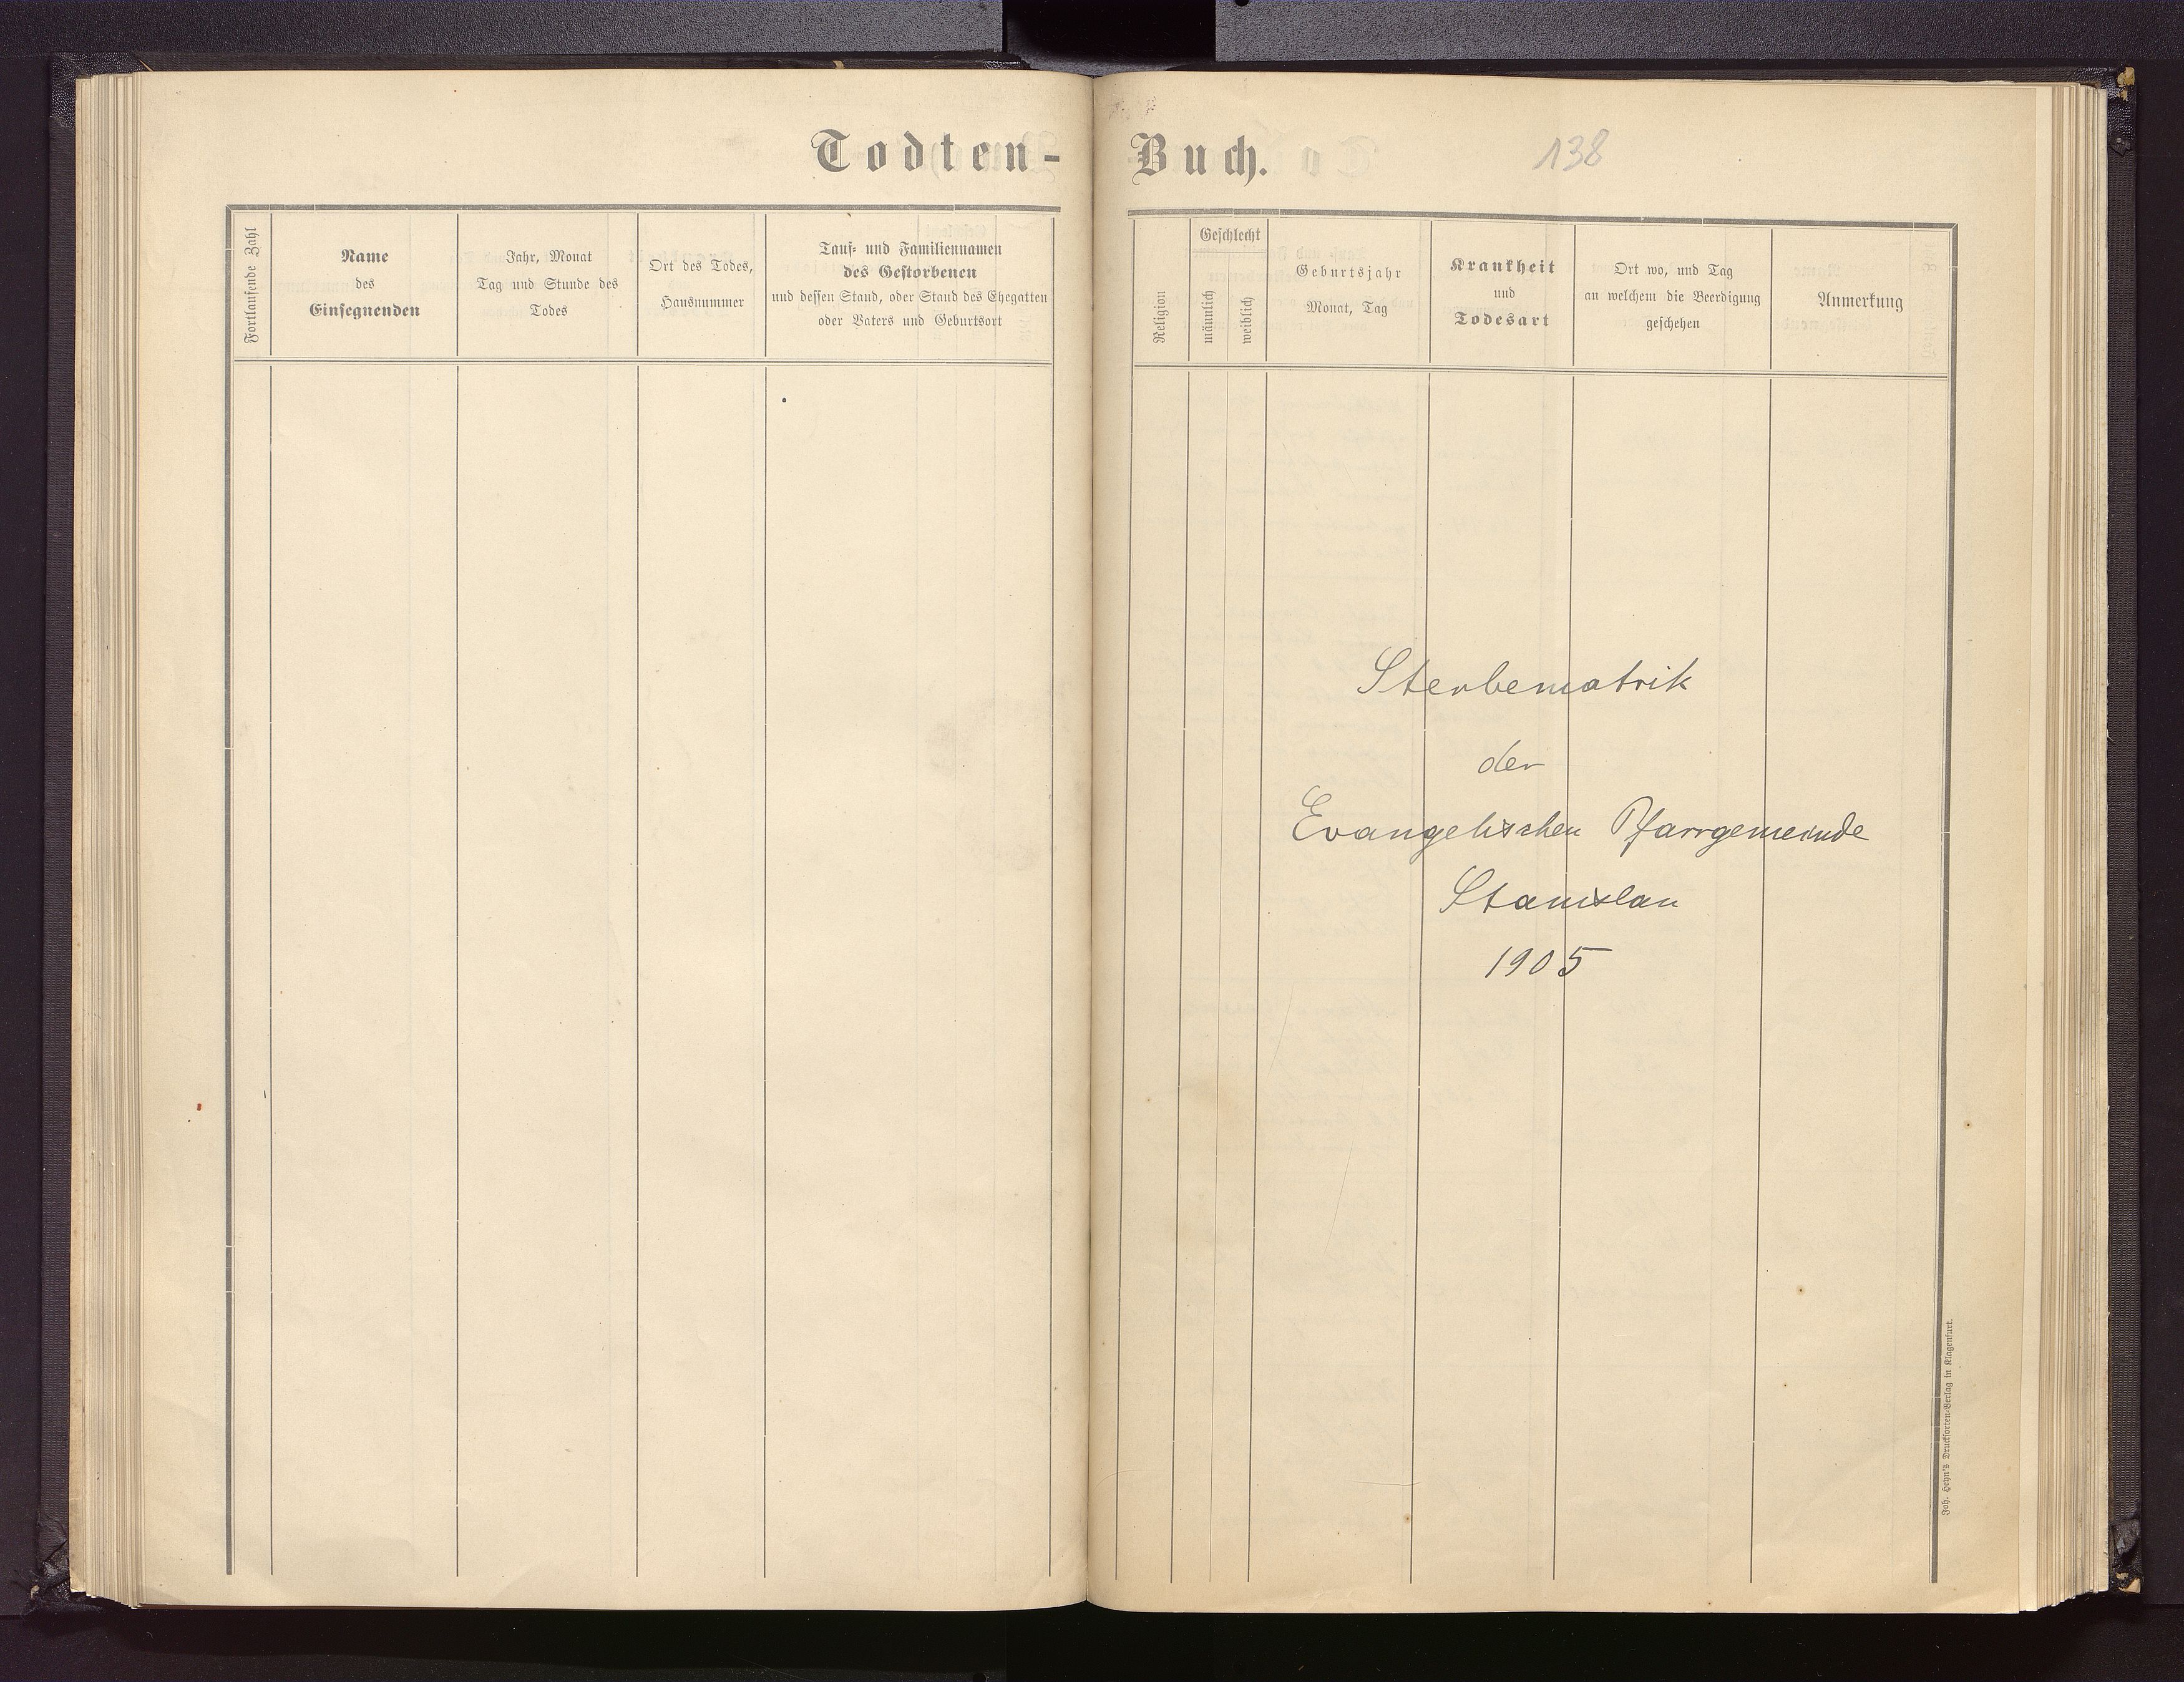 Todten-
Fortlaufende Zahl
Name
des
Einsegnenden
Jahr, Monat
Tag und Stunde des
Todes
Ort des Todes,
Hausnummer
Tauf- und Familiennamen
des Gestorbenen
und dessen Stand, oder Stand des Ehegatten
oder Vaters und Geburtsort
Buch.
138
Religion
Geschlecht
männlich
weiblich
Geburtsjahr
Monat, Tag
Krankheit
und
Todesart
Ort wo, und Tag
an welchem die Beerdigung
geschehen
Anmerkung
Sterbematrik
der
Evangelischen Pfarrgemeinde
Stanislau
1905
Joh. Heyn's Drucksorten-Verlag in Klagenfurt.